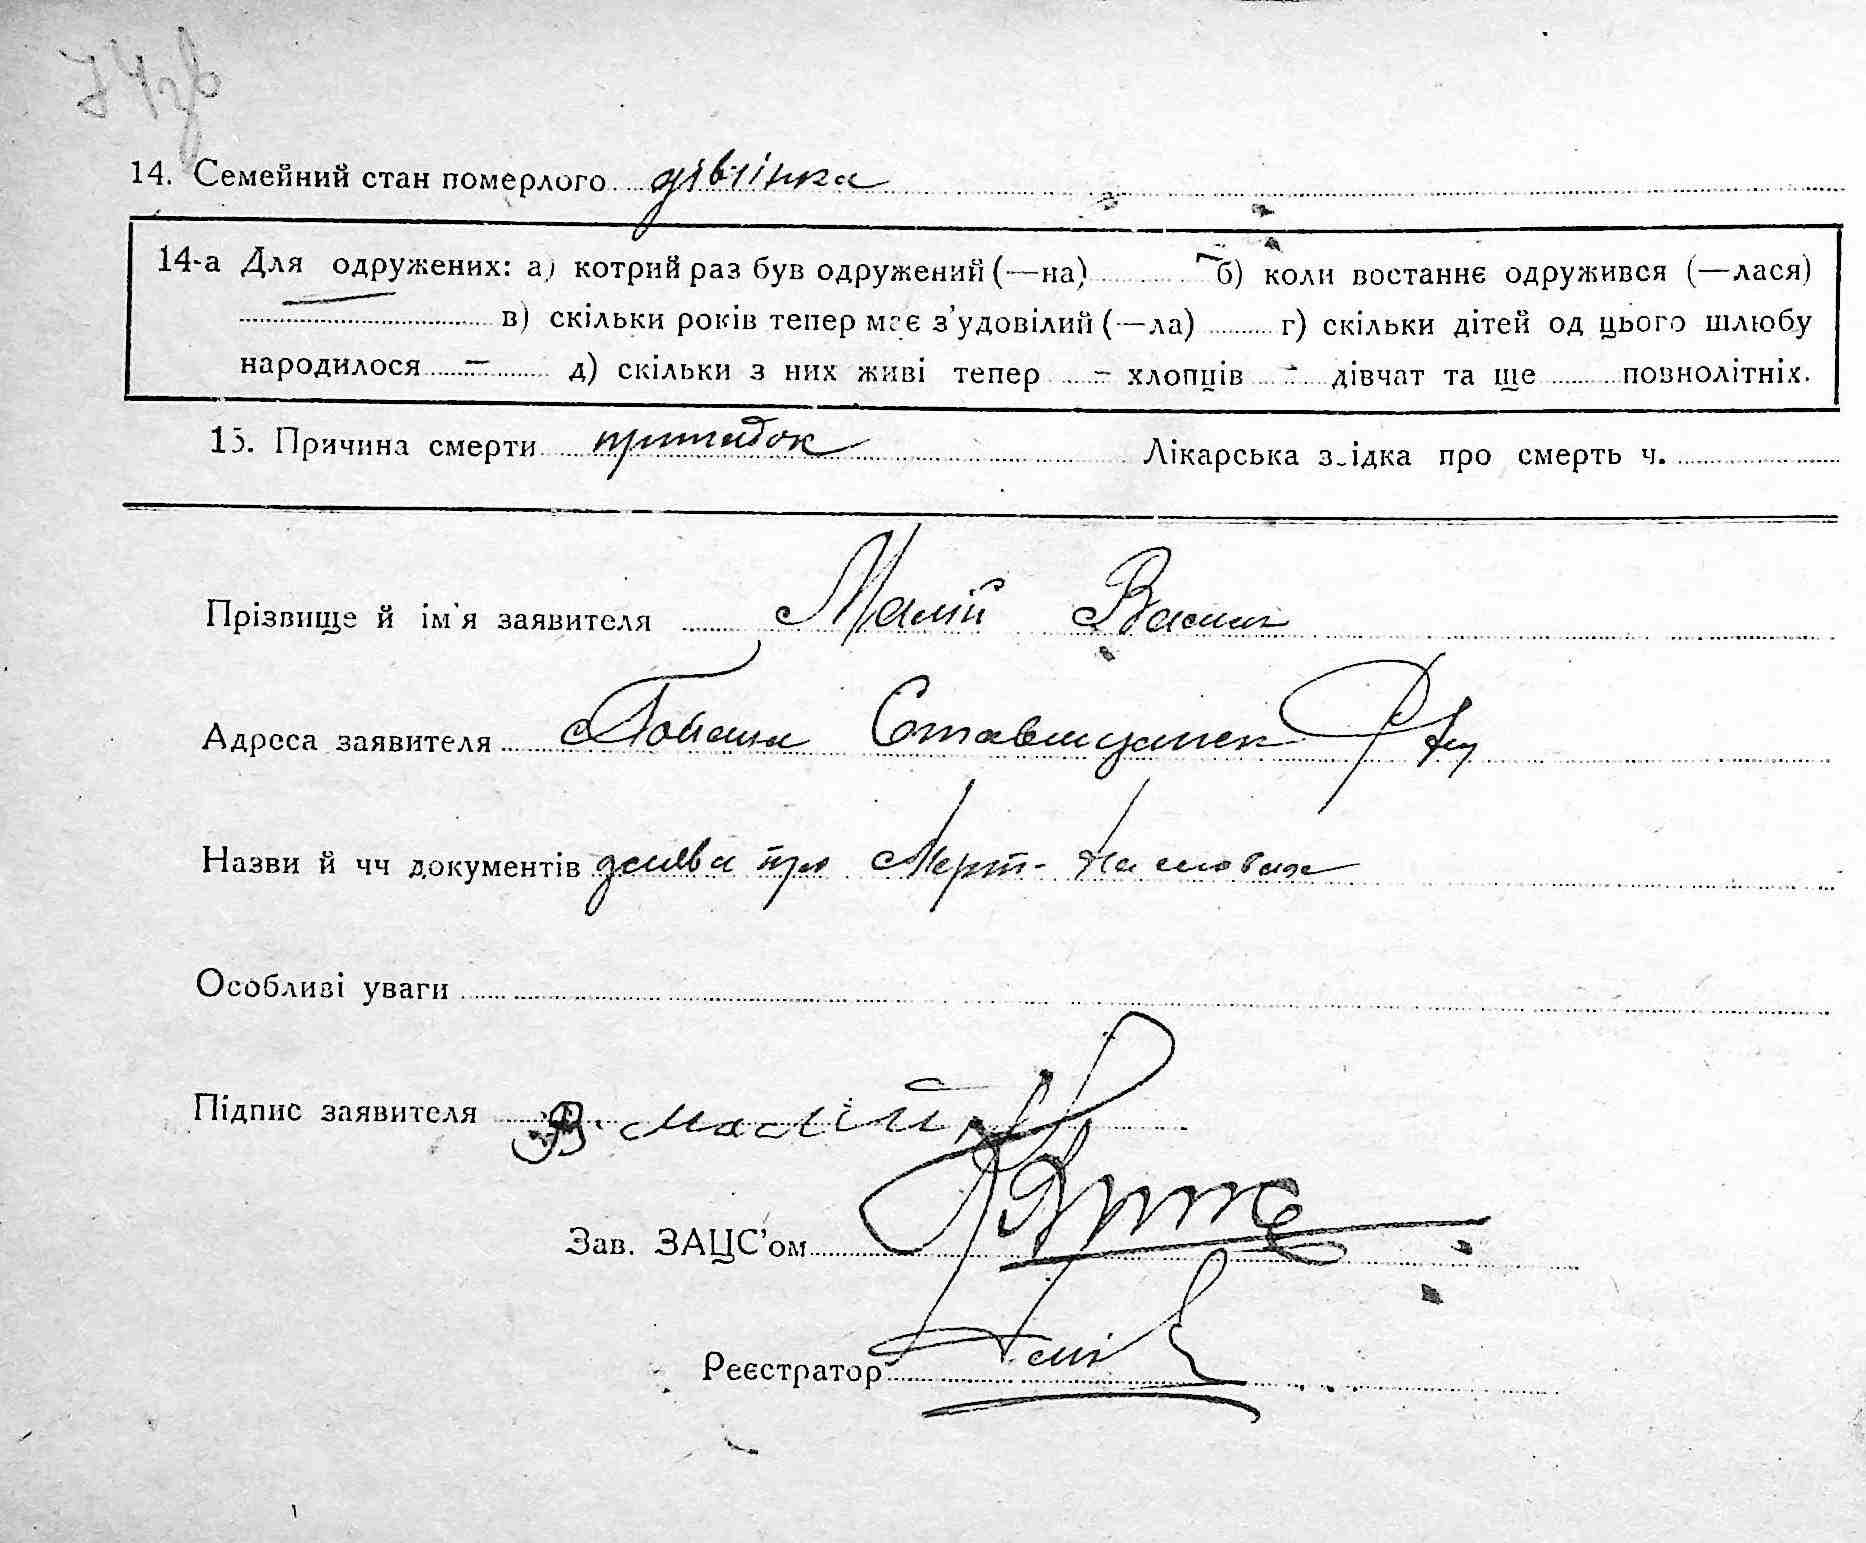 74зв
14. Семейний стан померлого дівчінка
14-а Для одружених: а) котрий раз був одружений (—на) б) коли востаннє одружився (—лася)
в) скільки років тепер має з'удовілий (—ла) г) скільки дітей од цього шлюбу
народилося — д) скільки з них живі тепер - хлопців - дівчат та ще повнолітніх.
15. Причина смерти припадок Лікарська звідка про смерть ч.
Прізвище й ім'я заявителя Малій Васил
Адреса заявителя Ставищанск
Назви й чч документів заява про смерт- на словах
Особливі уваги
Підпис заявителя В. Малій
Зав. ЗАЦС'ом
Реєстратор